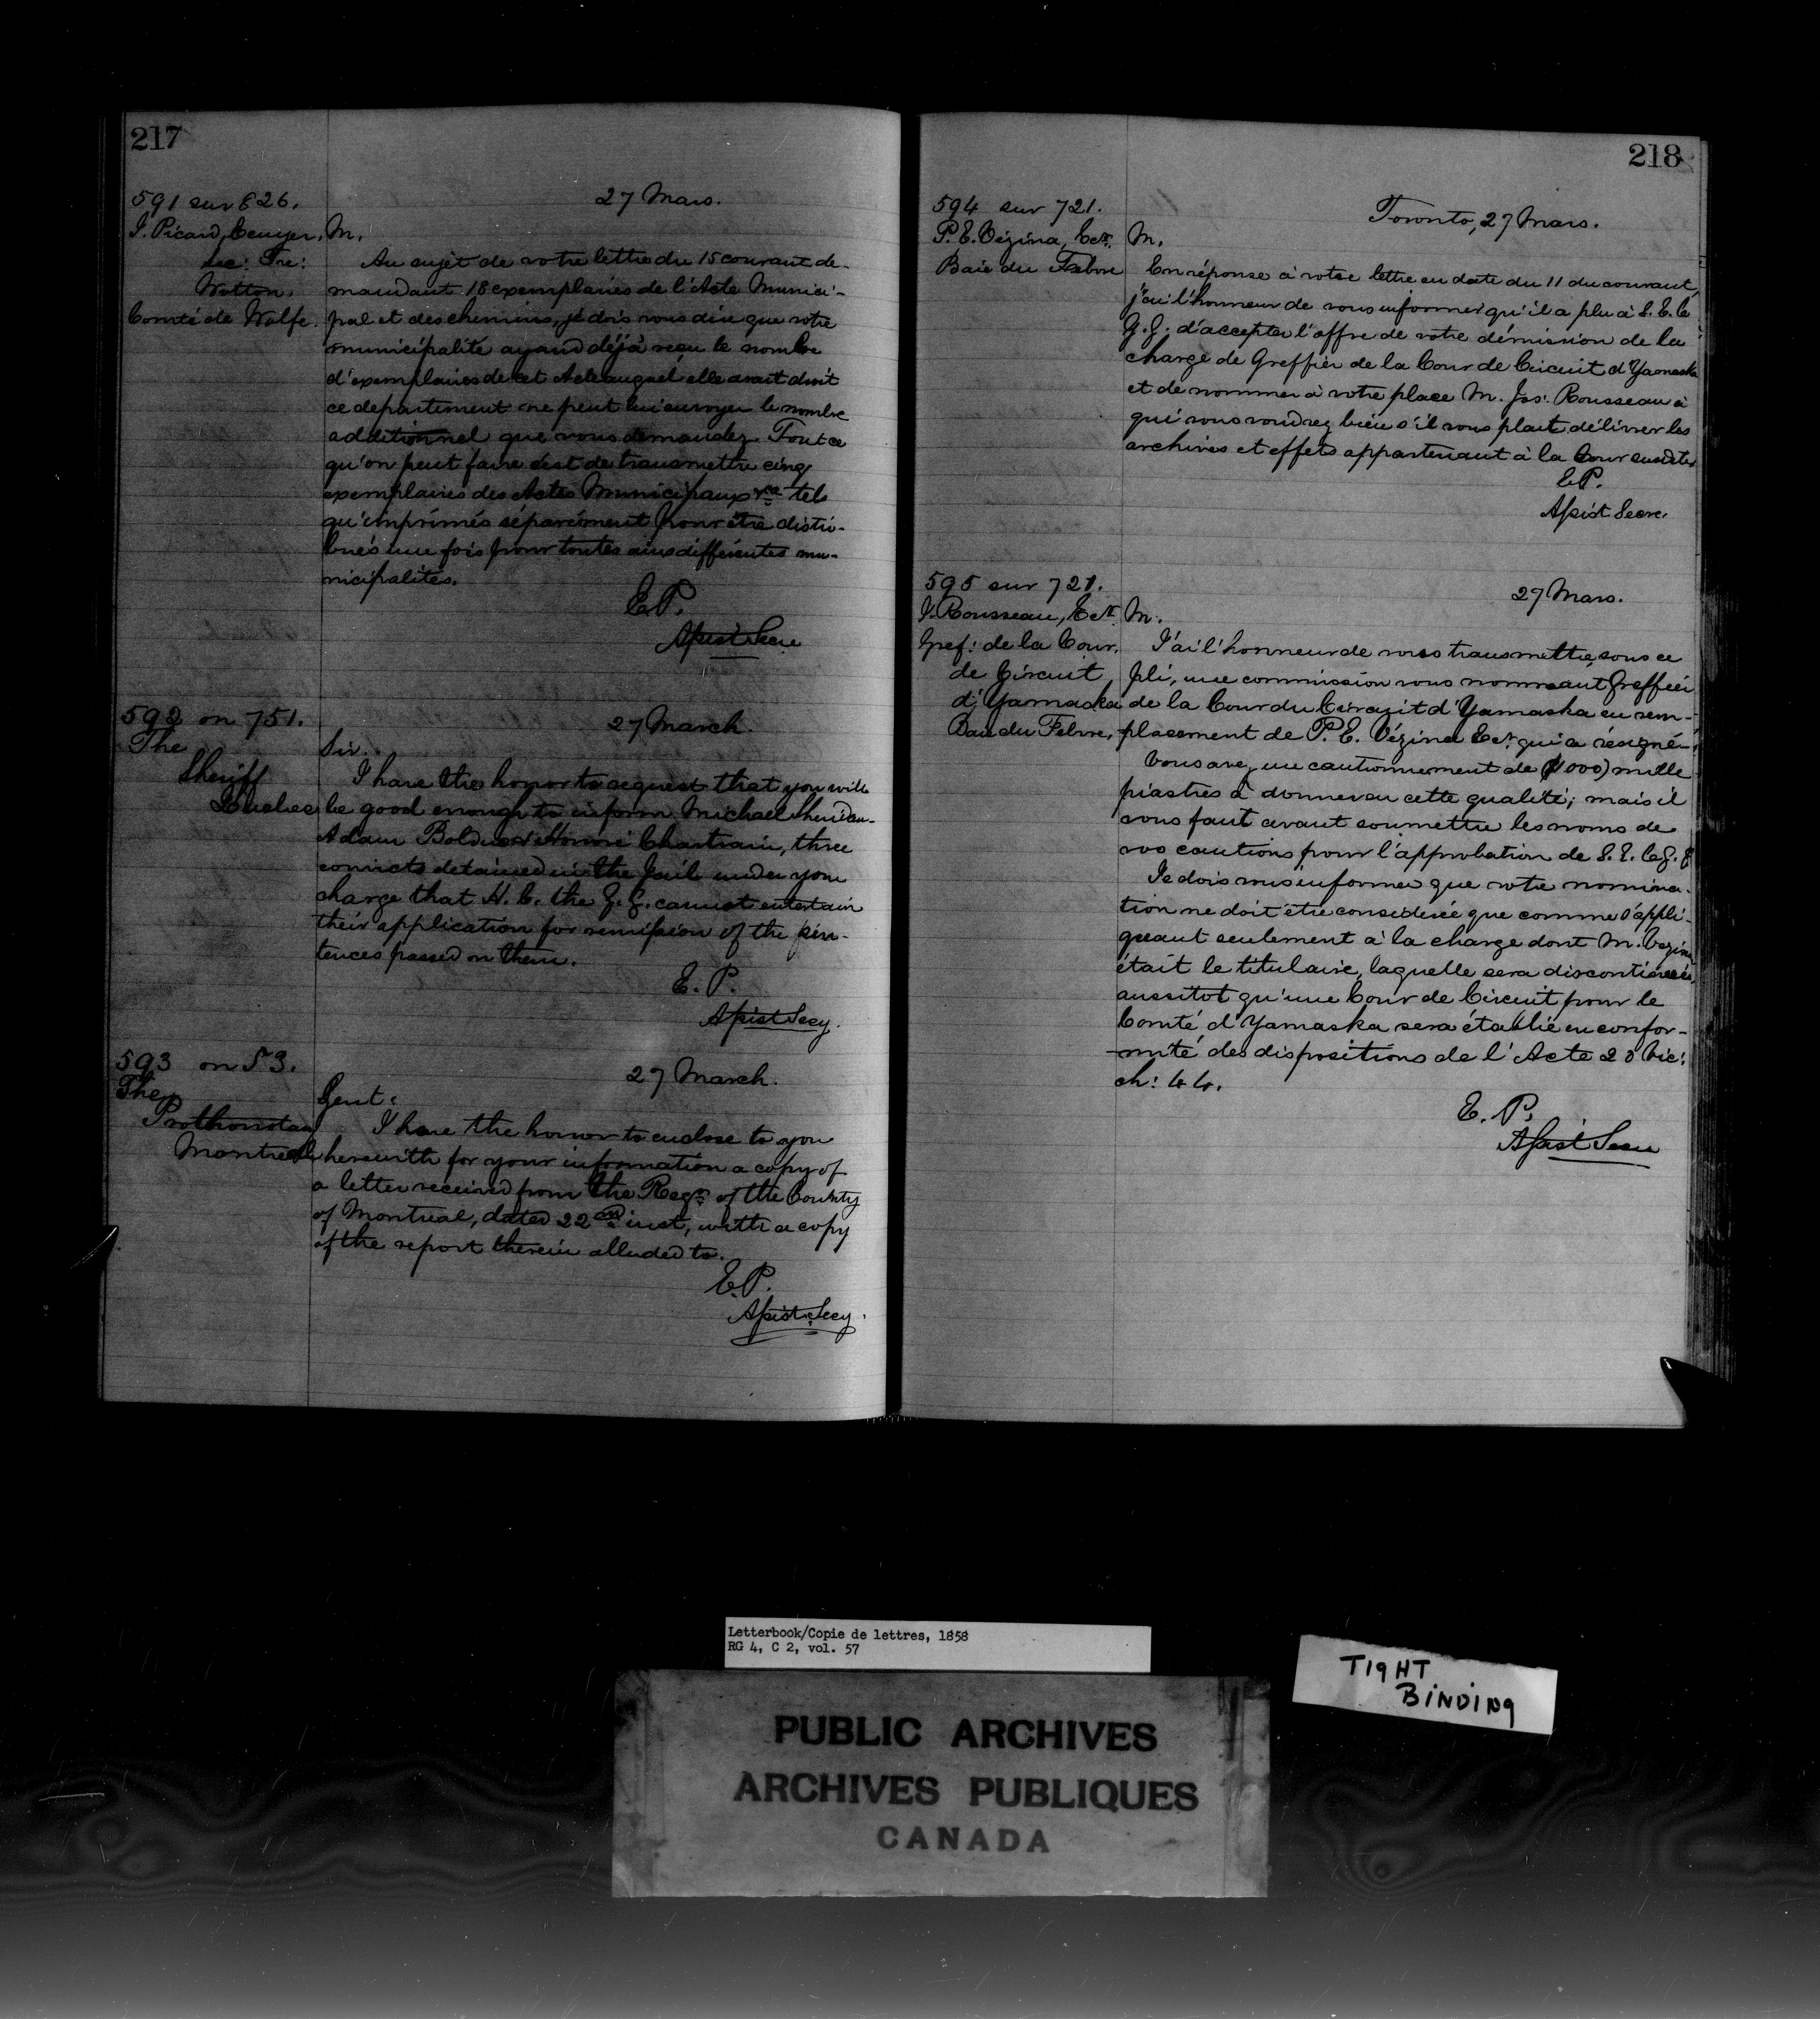 217
591 sur 826.
J. Picard, Ecuyer,
Sec: Tre:
Wotton,
Comté de Wolfe.
27 Mars.
M.
Au sujet de votre lettre du 15 courant de-
mandant 18 exemplaires de l'Acte Munici-
pal et des chemins, je dois vous dire que votre
municipalité ayand déjà reçu le nombre
d'exemplaires de cet Acte auquel elle avait droit
ce departement ne peut lui envoyer le nombre
additionnel que vous demandez. Tout ce
qu'on peut faire c'est de transmettre cinq
exemplaires des Actes Municipaux tels
qu'imprimés séparément pour être distri-
bués une fois pour toutes aux différentes mu-
nicipalités.
E.P.
Assist Secre
592 on 751.
The
Sheriff
Quebec
27 March.
Sir.
I have the honor to request that you will
be good enough to inform Michael Sheridan
Adam Bolduc & Honoré Chartrain, three
convicts detained in the Jail under your
charge that H. E. the G. G. cannot entertain
their application for remission of the sen-
tences passed on them.
E. P.
Assist Secy.
593 on 53.
The
Prothonotary
Montreal
27 March.
Gent:
I have the honor to enclose to you
herewith for your information a copy of
a letter received from the Regr. of the County
of Montreal, dated 22nd inst, with a copy
of the report therein alluded to.
E.P.
Assist. Secy.
218
594 sur 721.
P. E. Vézina, Ecr.
Baie du Febvre
Toronto, 27 Mars.
M.
En réponse à votre lettre en date du 11 du courant,
j'ai l'honneur de vous informer qu'il a plu à S. E. le
G. G. d'accepter l'offre de votre démission de la
charge de Greffier de la Cour de Circuit d'Yamaska
et de nommer à votre place M. Jos: Rousseau à
qui vous voudrez bien s'il vous plait délivrer les
archives et effets appartenant à la Cour susdite.
E.P.
Assist Secre.
595 sur 721.
J. Rousseau, Ecr.
Gref: de la Cour
de Circuit
d'Yamaska
Baie du Febvre,
27 Mars.
M.
J'ai l'honneur de vous transmettre, sous ce
pli, une commission vous nommant Greffier
de la Cour du Circuit d'Yamaska en rem-
placement de P. E. Vézina Ecr. qui a résigné.
Vous avez un cautionnement de ($1000) mille
piastres à donner en cette qualité; mais il
vous faut avant soumettre les noms de
vos cautions pour l'approbation de S. E. le G. G.
Je dois vous informer que votre nomina-
tion ne doit être considerée que comme s'appli-
quant seulement à la charge dont M. Vézina
était le titulaire, laquelle sera discontinuée,
aussitot qu'une Cour de Circuit pour le
Comté d'Yamaska sera établie en confor-
mité des dispositions de l'Acte 20 Vic:
ch: 44.
E. P.
Assist Secre
Letterbook/Copie de lettres, 1858
RG 4, C 2, vol. 57
TIGHT
BINDING
PUBLIC ARCHIVES
ARCHIVES PUBLIQUES
CANADA